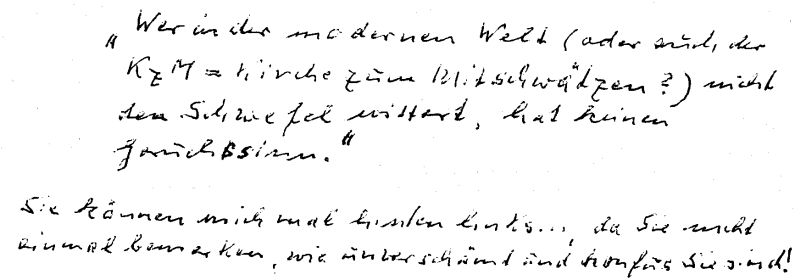 „Wer in der modernen Welt (oder auch der
KzM = Kirche zum Mitschwätzen?) nicht
den Schwefel wittert, hat keinen
Geruchssinn."
Sie können mich mal hinten links..., da Sie nicht
einmal bemerken, wie unverschämt und konfus Sie sind!